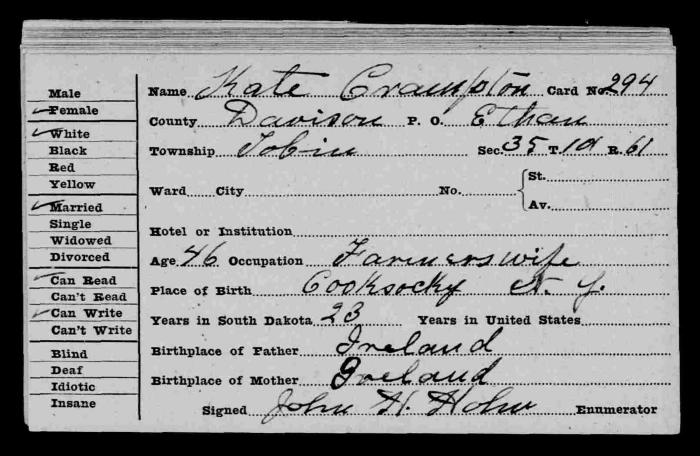 Male
Female
White
Black
Red
Yellow
Married
Single
Widowed
Divorced
Can Read
Can't Read
Can Write
Can't Write
Blind
Deaf
Idiotic
Insane
Name Kate Crampton Card No 294
County Davison P. O. Ethan
Township Tobin Sec. 35 T. 101 R. 61
Ward City No. St.
Av.
Hotel or Institution
Age 46 Occupation Farmers wife
Place of Birth Cooksocky N. Y.
Years in South Dakota 23 Years in United States
Birthplace of Father Ireland
Birthplace of Mother Ireland
Signed John H. Enumerator